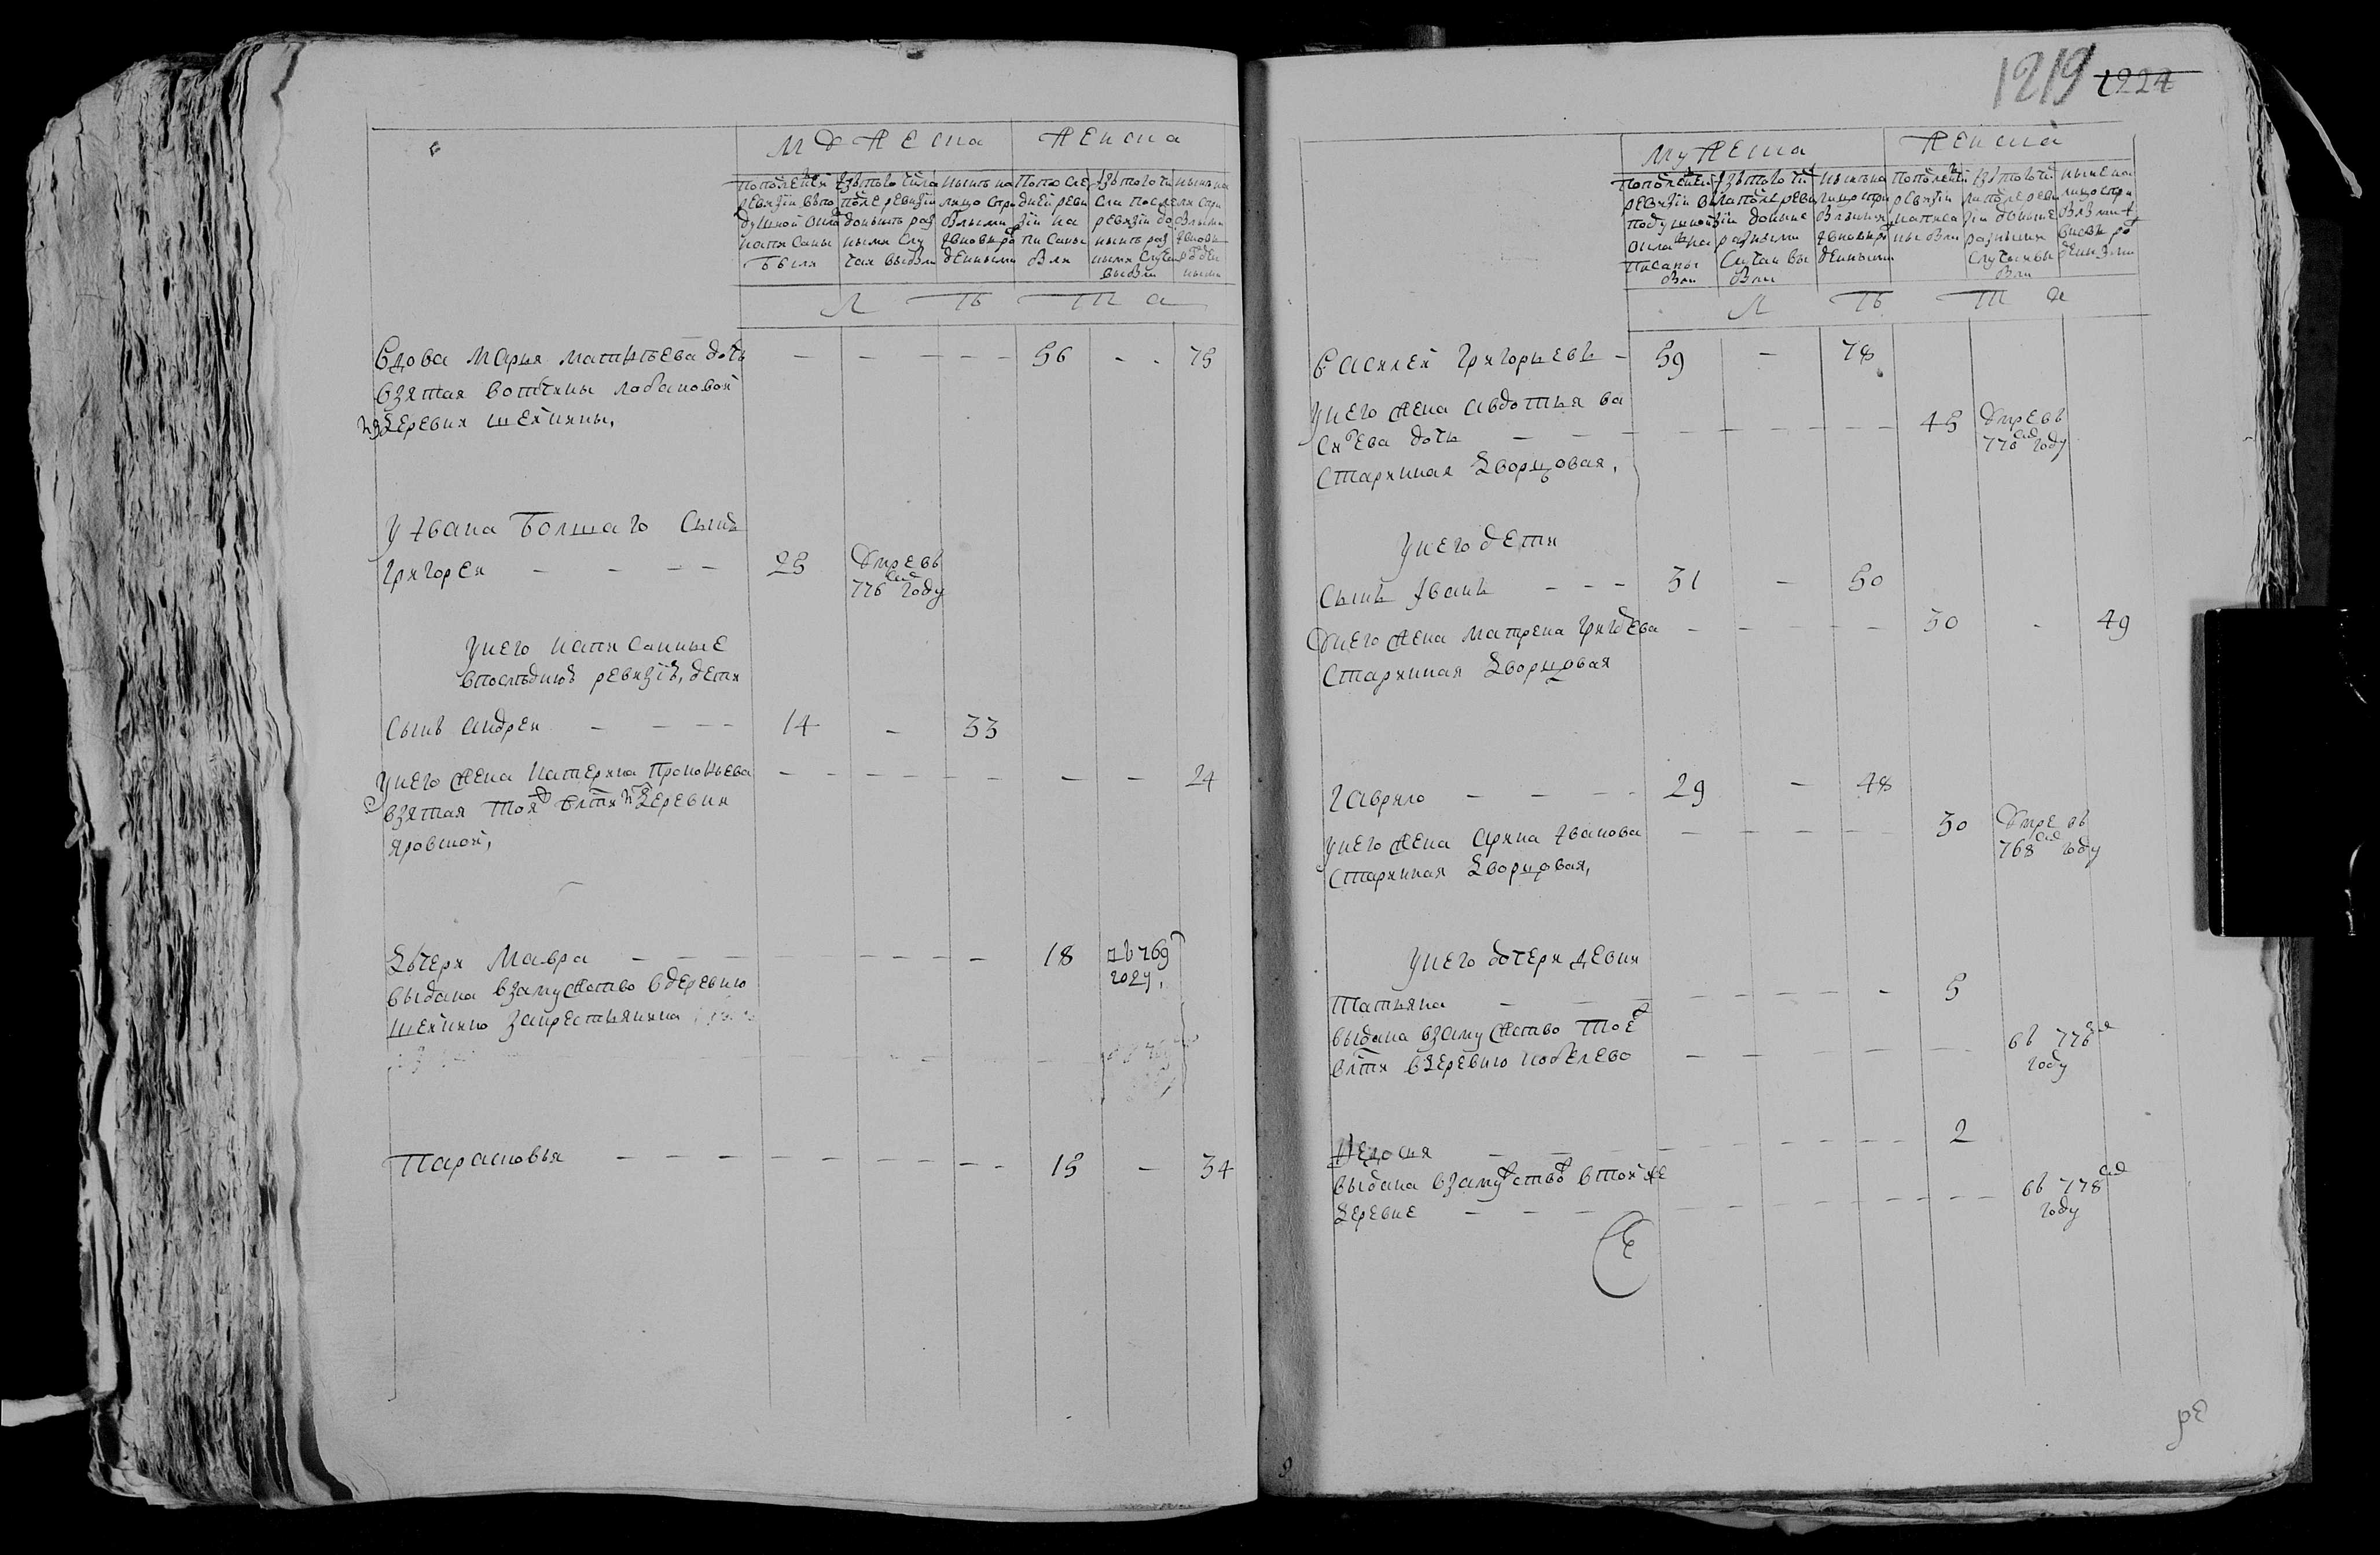 Мужеска Женска
по последней ревизіи в подушной окладъ написаны были
изъ того числа после ревизіи до ныне разными случаи выбыли
ныне на лицо с прибылыми и вновь рожденными
по последней ревизіи написаны были
изъ того числа после ревизіи до ныне разными случаи выбыли
ныне на лицо с прибылыми и вновь рожденными
Л ѣ т а
Вдова Марья Матвѣева дочь — — — — 56 - - 75
взятая вотчины лобановой
из деревни шеикины,
У Ивана Болшаго сынъ
Григореи — — — — 25 умре въ
776 году
У него написанные
в последнюю ревизію дети
Сынъ Андреи — — — — 14 — 33
у него жена Катерина Прокофьева — — — — — — — — 24
взятая тоя ж вотчины из деревни
яровской,
Дочери Мавра — — — — — — — 18 въ 769
году,
выдана в замужство в деревню
шеикину за крестьянина
Парасковья — — — — — — — — — 15 — 34
1219 1224
Мужеска Женска
по последней ревизіи в подушной окладъ написаны были
изъ того числа после ревизіи до ныне разными случаи выбыли
ныне на лицо с прибылыми и вновь рожденными
по последней ревизіи написаны были
изъ того числа после ревизіи до ныне разными случаи выбыли
ныне на лицо с прибылыми и вновь рожденными
Л ѣ т а
Василеи Григорьевъ — 59 — 78
У него жена Авдотья Ва
сильева дочь — — — — — — — 45 умре въ
776 году
Старинная дворцовая,
У него дети
Сынъ Иванъ — — — 31 — 50
У него жена Матрена Григорьева — — — — — 30 - 49
Старинная дворцовая
Гаврило — — — — 29 — 48
у него жена Арина Иванова — — — — — 30 умре въ
768 году
Старинная дворцовая,
У него дочери девки
Татьяна — — — — — — — — 5
выдана в замужство тое ж
вотчины в деревню кобелево — — — — — въ 776
году
Федосия — — — — — — — — 2
выдана в замужство в той же
деревне — — — — — — — — — въ 778
году
ре